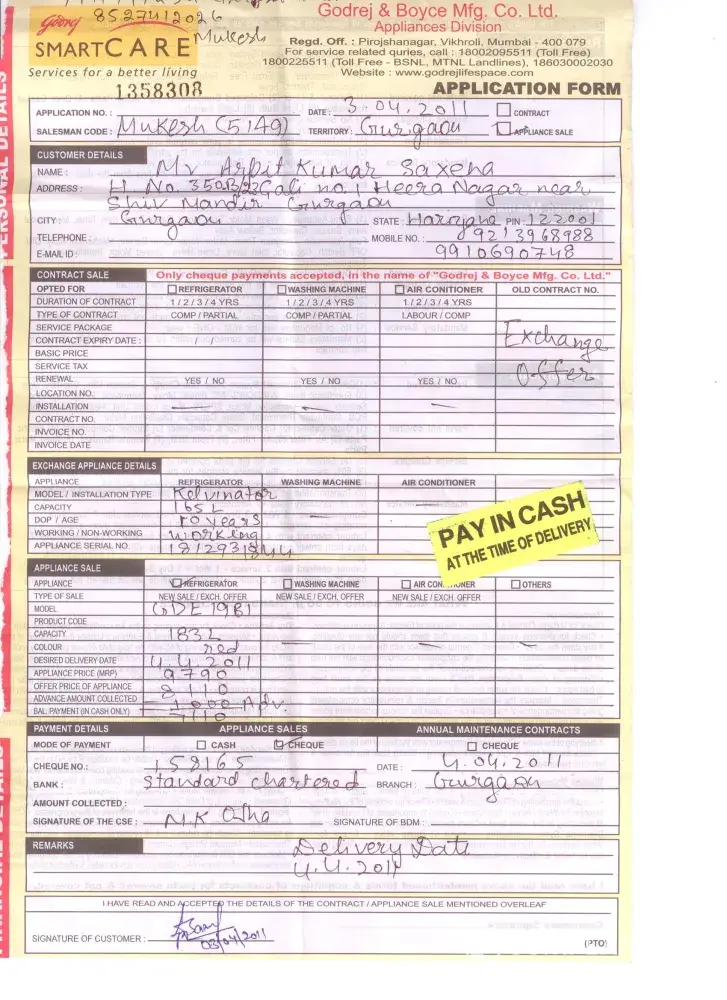 Godrej 8527412026
Mukesh
SMARTCARE
Services for a better living
1358308
Godrej & Boyce Mfg. Co. Ltd.
Appliances Division
Regd. Off. : Pirojshanagar, Vikhroli, Mumbai - 400 079
For service related quries, call : 18002095511 (Toll Free)
1800225511 (Toll Free - BSNL, MTNL Landlines), 186030002030
Website : www.godrejlifespace.com
APPLICATION FORM
APPLICATION NO. : DATE : 3.04.2011 CONTRACT
SALESMAN CODE : Mukesh (5149) TERRITORY : Gurgaon APPLIANCE SALE
CUSTOMER DETAILS
NAME : Mr Arpit Kumar Saxena
ADDRESS : H No. 350B/22 Gali no. 1 Heera Nagar near
Shiv Mandir Gurgaon
CITY : Gurgaon STATE : Haryana PIN : 122001
TELEPHONE : MOBILE NO. : 9213968988
E-MAIL ID : 9910690748
CONTRACT SALE Only cheque payments accepted, in the name of "Godrej & Boyce Mfg. Co. Ltd."
OPTED FOR REFRIGERATOR WASHING MACHINE AIR CONITIONER OLD CONTRACT NO.
DURATION OF CONTRACT 1 / 2 / 3 / 4 YRS 1 / 2 / 3 / 4 YRS 1 / 2 / 3 / 4 YRS
TYPE OF CONTRACT COMP / PARTIAL COMP / PARTIAL LABOUR / COMP
SERVICE PACKAGE
CONTRACT EXPIRY DATE : / / Exchange
BASIC PRICE
SERVICE TAX Offer
RENEWAL YES / NO YES / NO YES / NO
LOCATION NO.
INSTALLATION
CONTRACT NO.
INVOICE NO.
INVOICE DATE
EXCHANGE APPLIANCE DETAILS
APPLIANCE REFRIGERATOR WASHING MACHINE AIR CONDITIONER
MODEL / INSTALLATION TYPE Kelvinator
CAPACITY 165 L
DOP / AGE 10 years
WORKING / NON-WORKING working
APPLIANCE SERIAL NO.
PAY IN CASH
AT THE TIME OF DELIVERY
APPLIANCE SALE
APPLIANCE REFRIGERATOR WASHING MACHINE AIR CON OTHERS
TYPE OF SALE NEW SALE / EXCH. OFFER NEW SALE / EXCH. OFFER NEW SALE / EXCH. OFFER
MODEL GDE 19B1
PRODUCT CODE
CAPACITY 183 L
COLOUR red
DESIRED DELIVERY DATE 4.4.2011
APPLIANCE PRICE (MRP) 9790
OFFER PRICE OF APPLIANCE 8110
ADVANCE AMOUNT COLLECTED 1000 Adv.
BAL. PAYMENT (IN CASH ONLY) 7110
PAYMENT DETAILS APPLIANCE SALES ANNUAL MAINTENANCE CONTRACTS
MODE OF PAYMENT CASH CHEQUE CHEQUE
CHEQUE NO.: 158165 DATE : 4.04.2011
BANK : Standard chartered BRANCH : Gurgaon
AMOUNT COLLECTED :
SIGNATURE OF THE CSE : N.K Ojha SIGNATURE OF BDM :
REMARKS Delivery Date
4.4.2011
I HAVE READ AND ACCEPTED THE DETAILS OF THE CONTRACT / APPLIANCE SALE MENTIONED OVERLEAF
SIGNATURE OF CUSTOMER : 03/04/2011
(PTO)